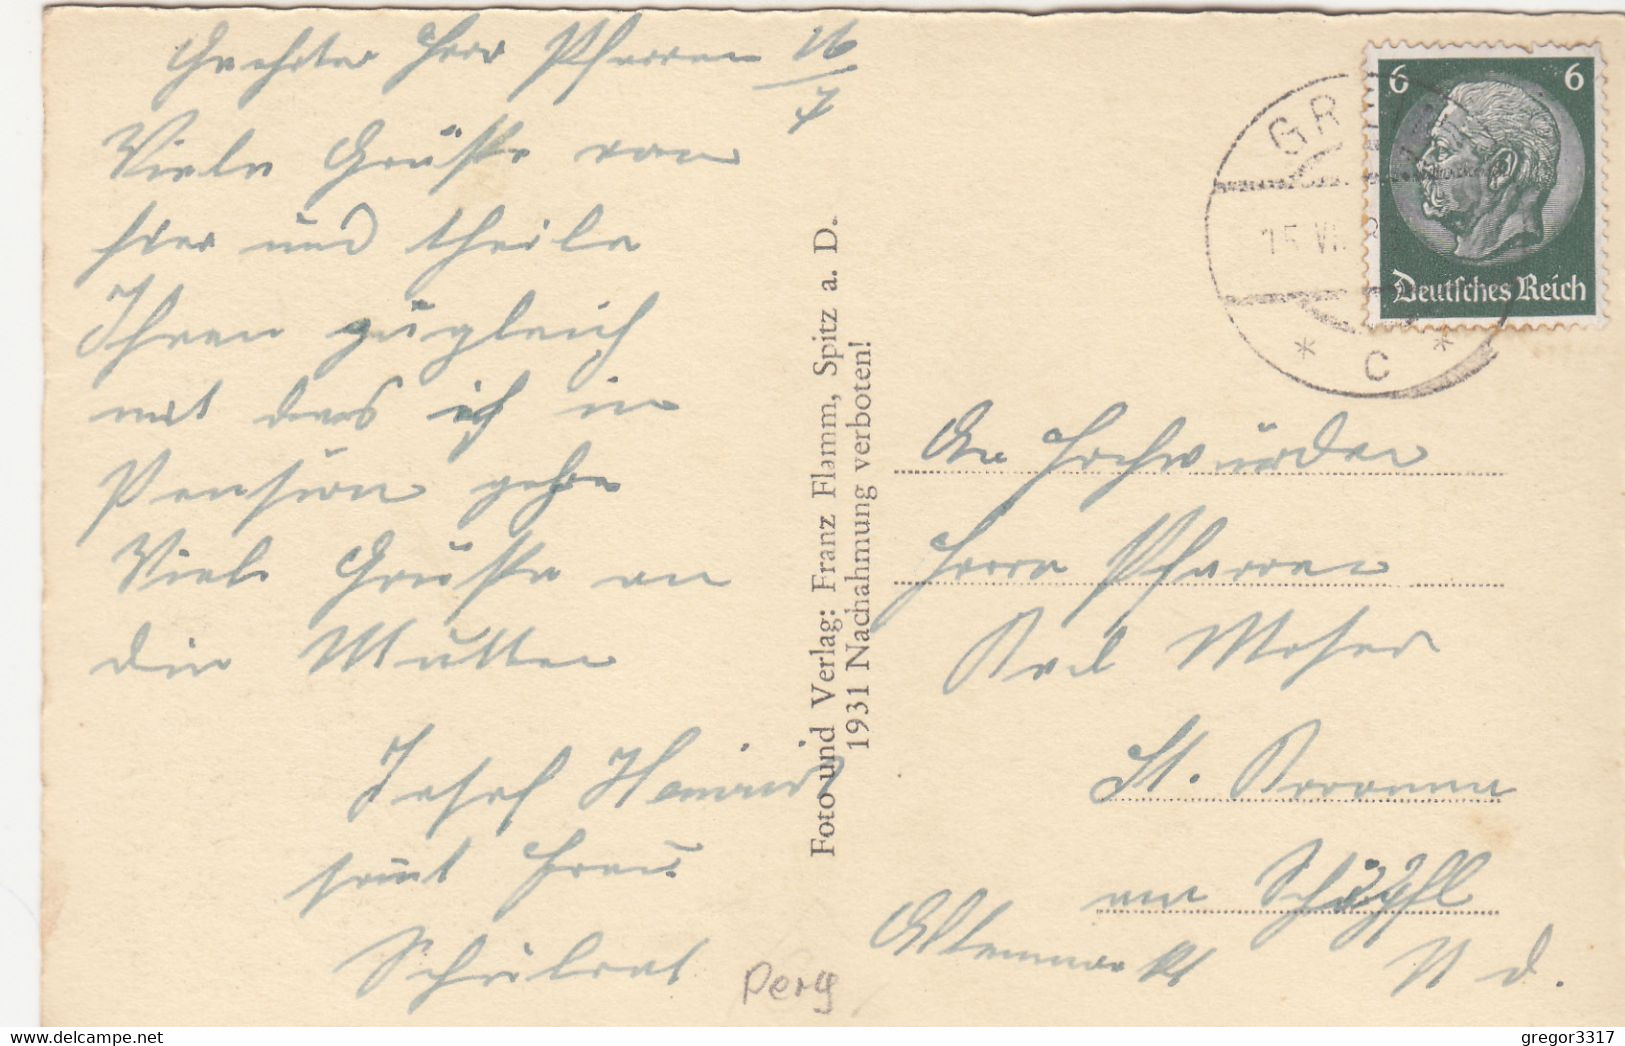 Geehrter Herr Pfarrer 16/7
Viele Grüße von
hier und theile
Ihnen zugleich
mit das ich in
Pension gehe
Viele Grüße an
die Mutter
Josef
samt Frau
Schulrat
Perg
Foto und Verlag: Franz Flamm, Spitz a. D.
1931 Nachahmung verboten!
GR
15 VII
* C *
6 6
Deutsches Reich
An Hochwürden
Herrn Pfarrer
Karl Moser
St. Corona
am Schöpfl
Altenmarkt N d.
gregor3317